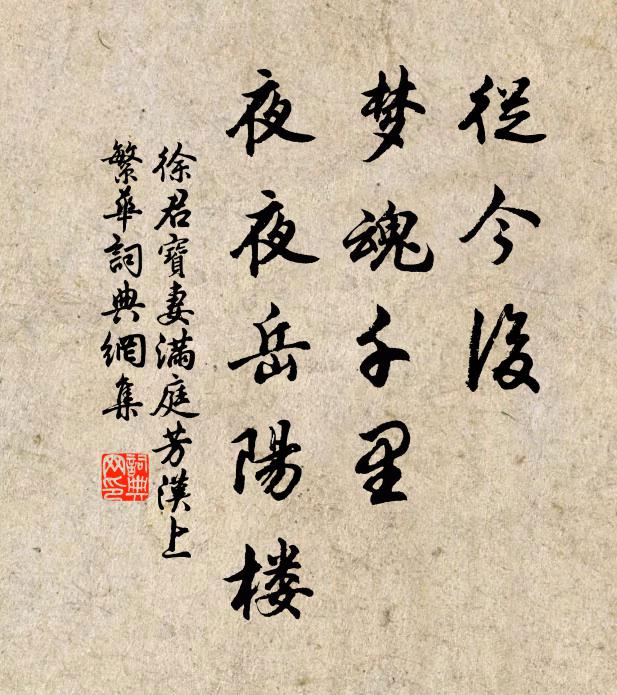 從今後
梦魂千里
夜夜岳陽楼
徐君寶妻滿庭芳漢上
繁華詞典網集
詞典
网印